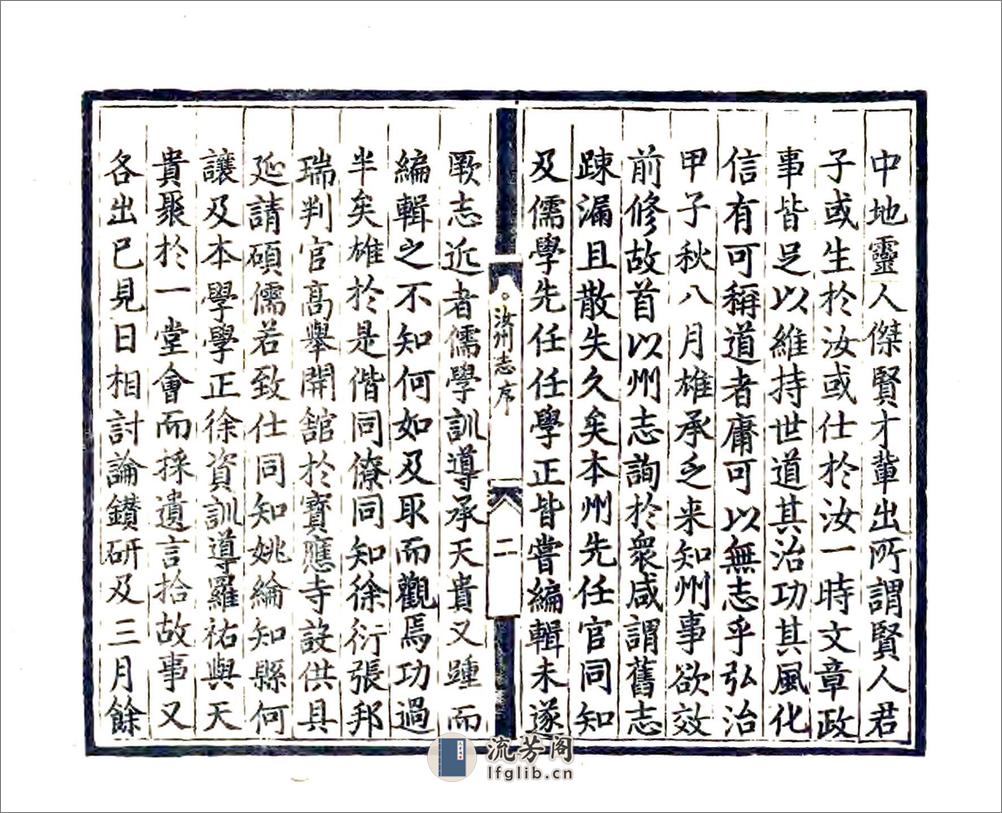 中地靈人傑賢才輩出所謂賢人君
子或生於汝或仕於汝一時文章政
事皆足以維持世道其治功其風化
信有可稱道者庸可以無志乎弘治
甲子秋八月雄承乏来知州事欲效
前修故首以州志詢於衆咸謂舊志
踈漏且散失久矣本州先任官同知
及儒學先任任學正皆嘗編輯未遂
汝州志序
二
厥志近者儒學訓導承天貴又踵而
編輯之不知何如及取而觀焉功過
半矣雄於是偕同僚同知徐衍張邦
瑞判官高舉開舘於寳應寺設供具
延請碩儒若致仕同知姚綸知縣何
讓及本學學正徐資訓導羅祐與天
貴聚於一堂會而採遺言拾故事又
各出已見日相討論鑽研及三月餘
流芳阁
lfglib.cn